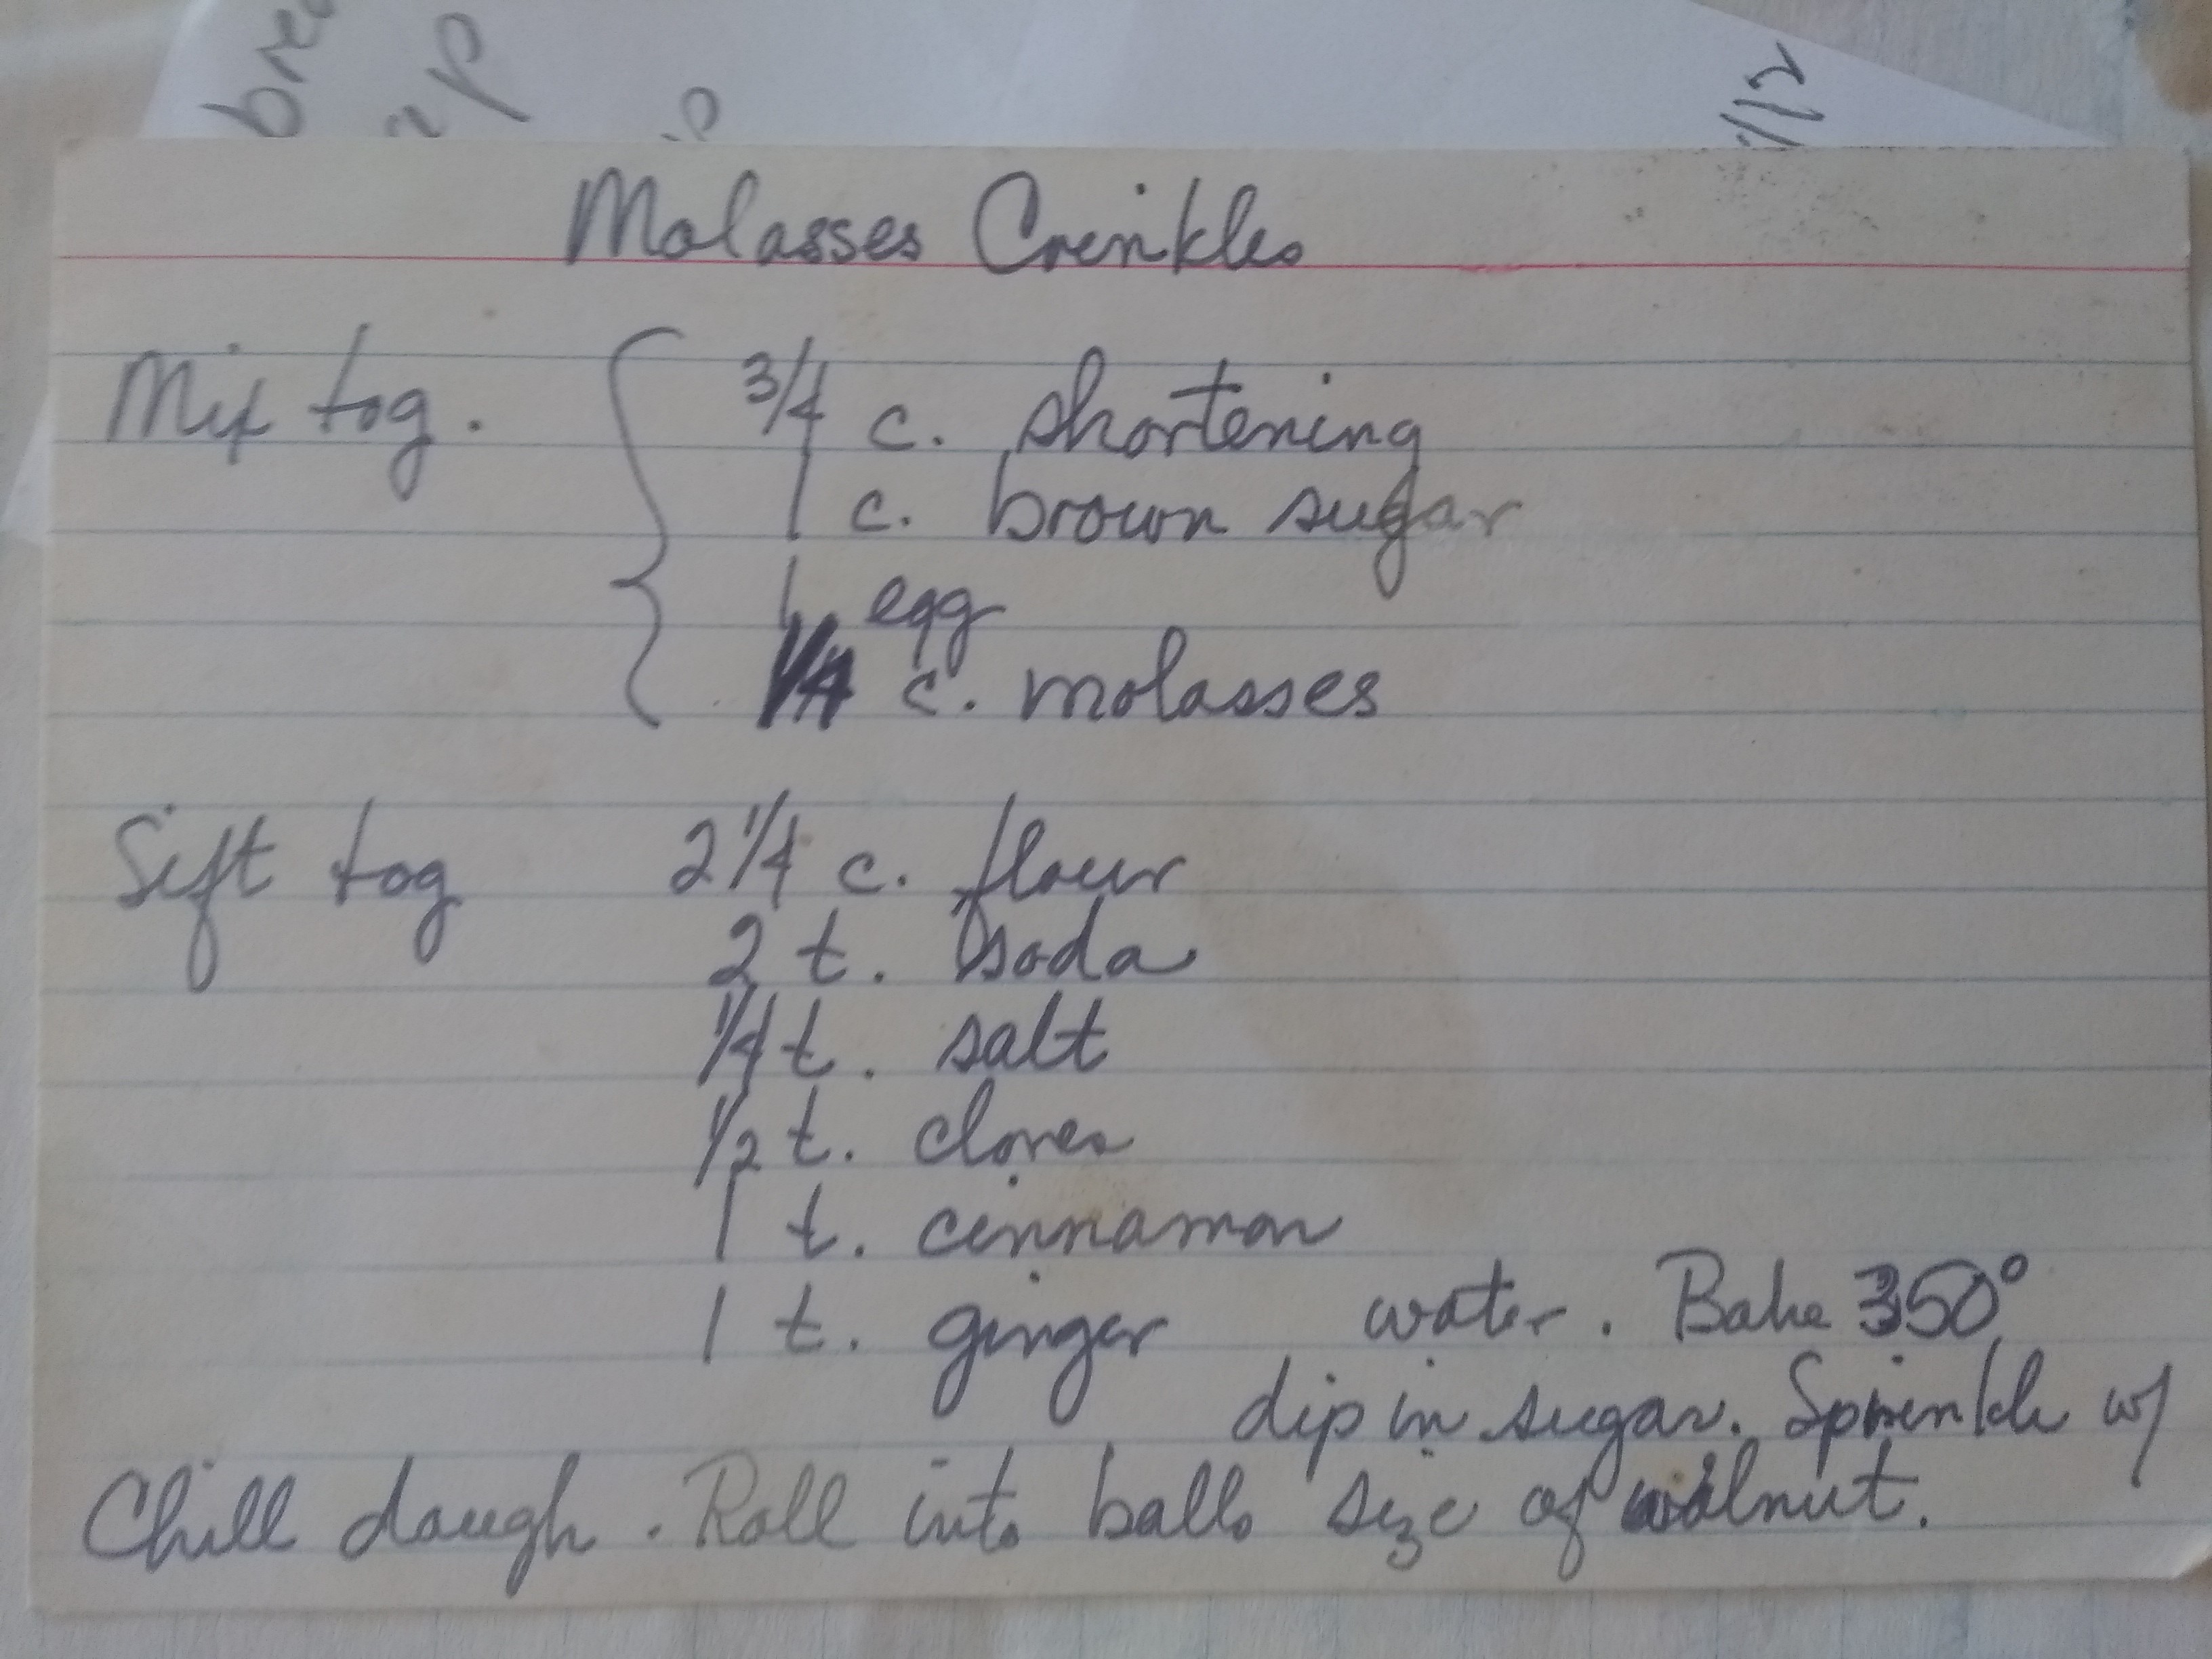 bre
Molasses Crinkles
Mix tog. 3/4 c. shortening
1 c. brown sugar
1 egg
1/4 c. molasses
Sift tog 2 1/4 c. flour
2 t. soda
1/4 t. salt
1/2 t. cloves
1 t. cinnamon
1 t. ginger
Chill dough. Roll into balls size of walnut.
dip in sugar. Sprinkle w/
water. Bake 350°